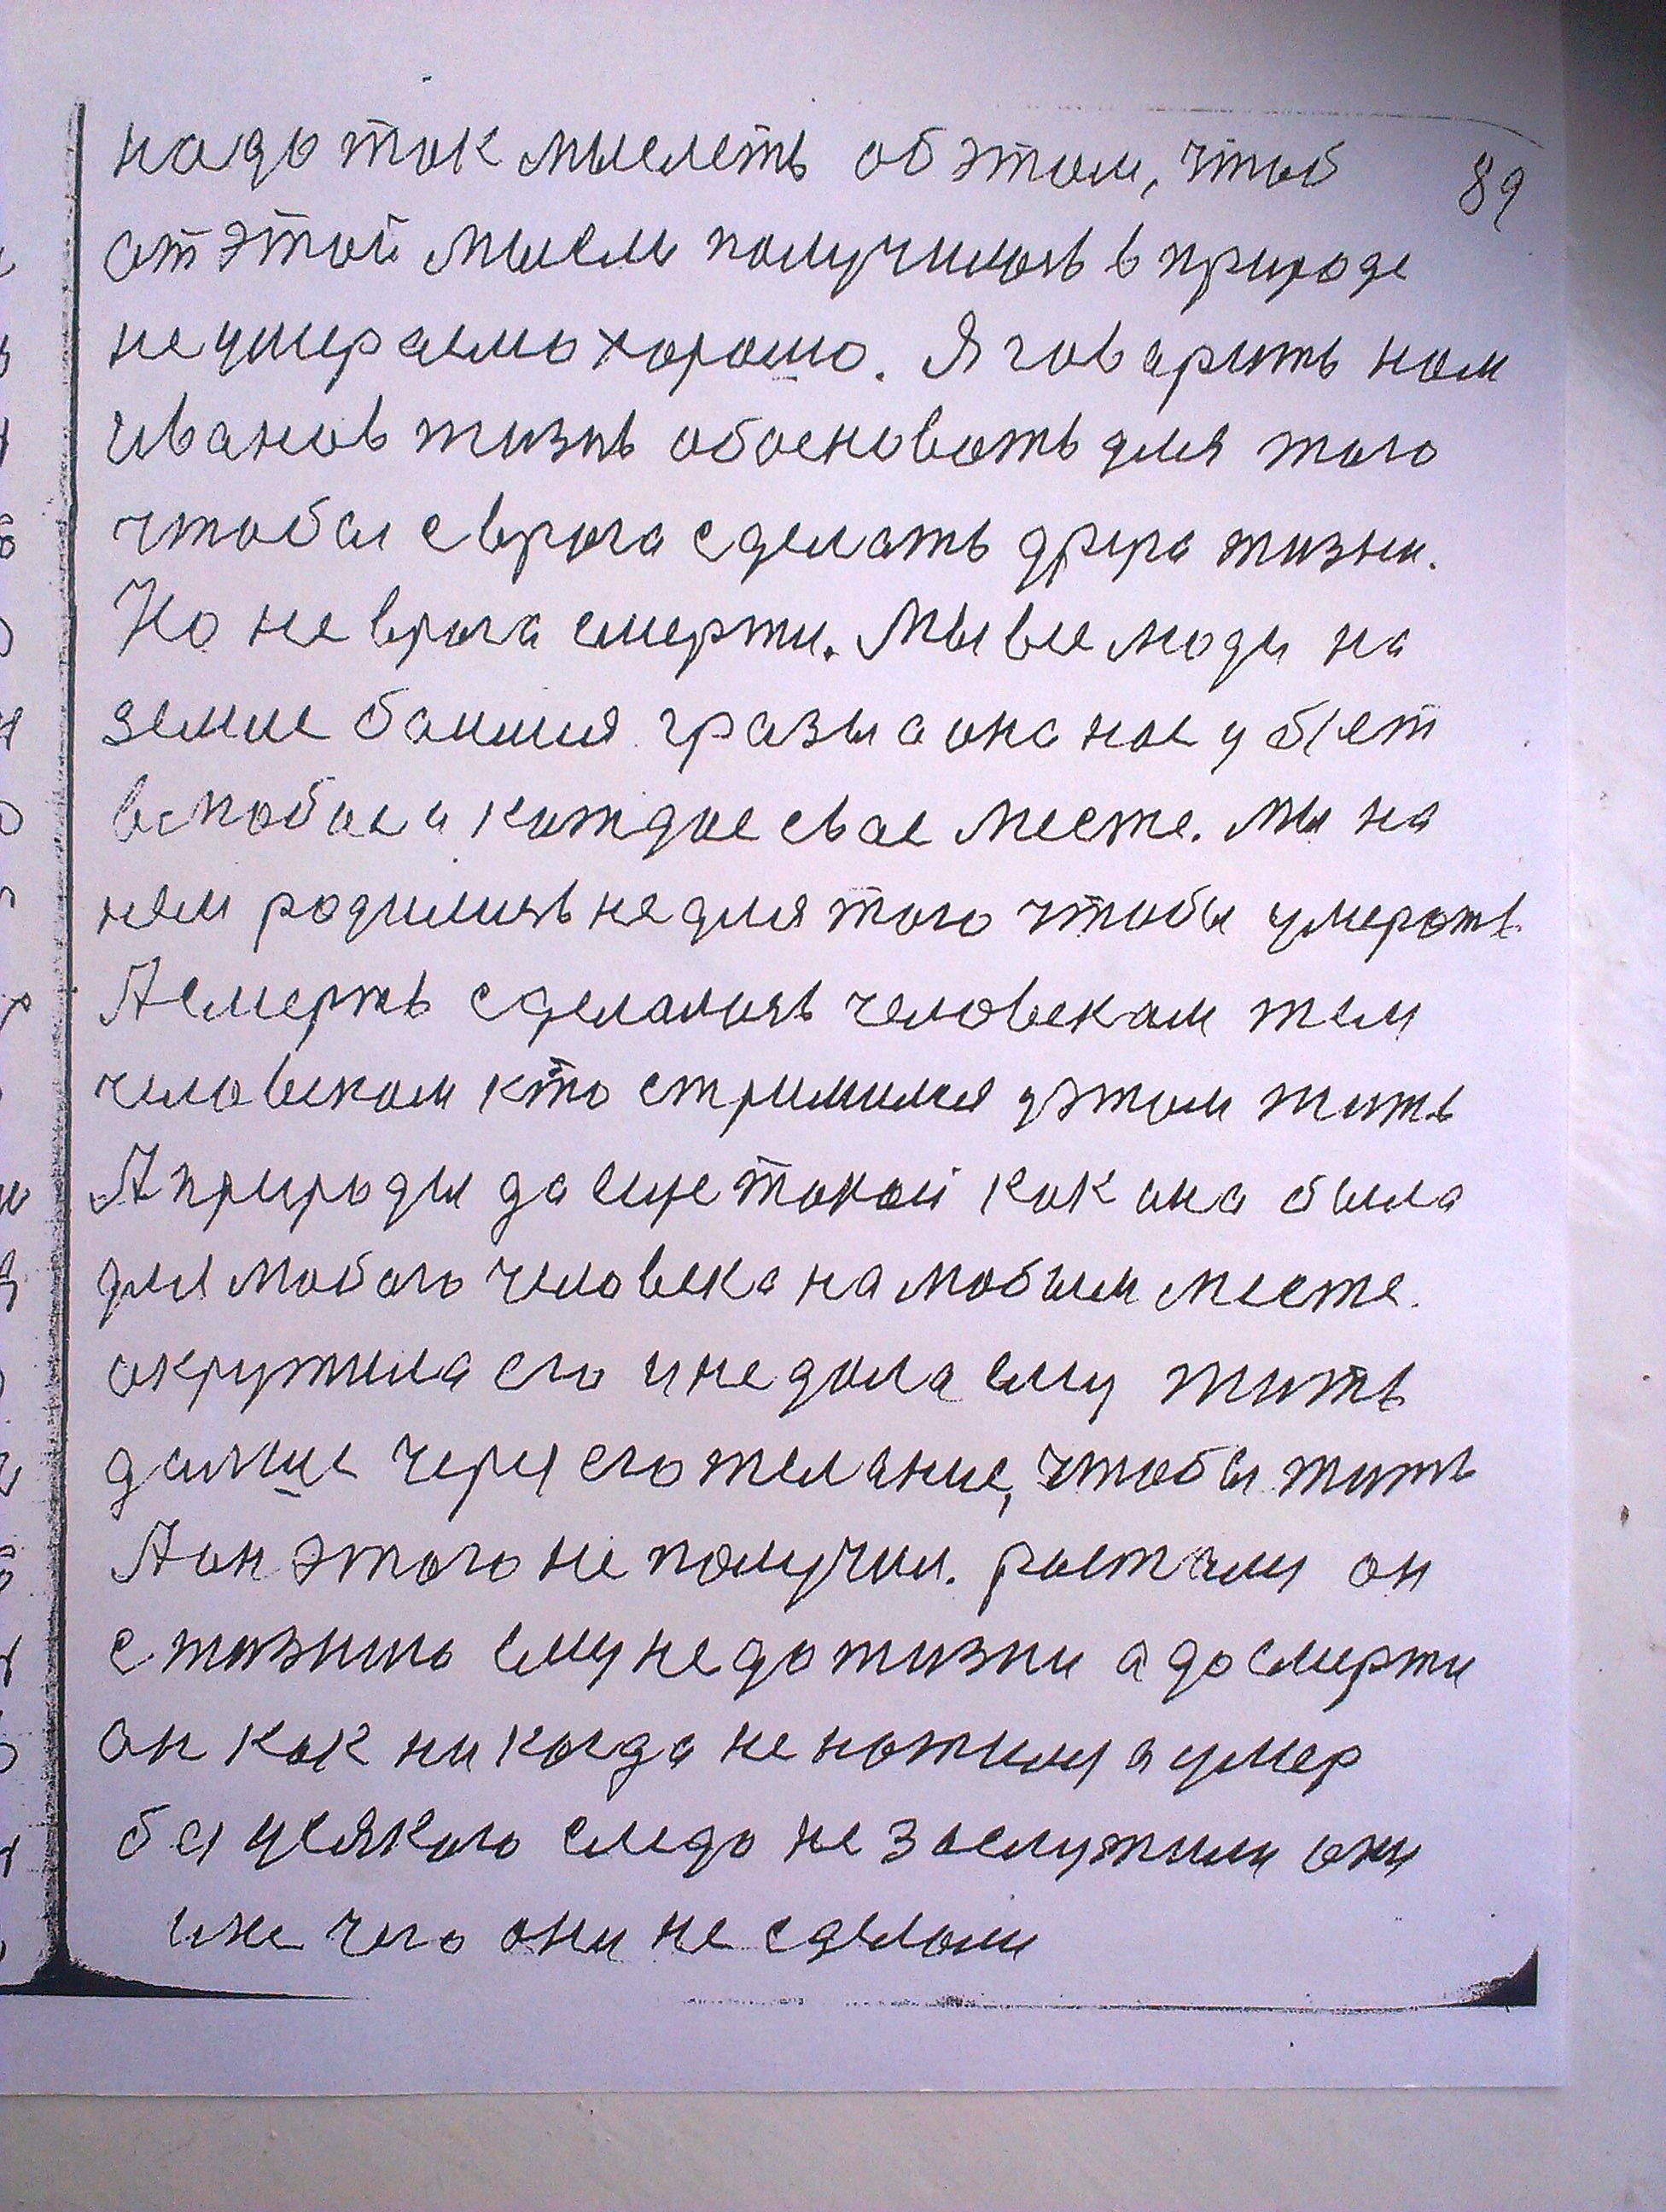 надо так мыслеть об этом, чтоб 89
от этой мысли получилось в природе
не умераемо хорошо. Я говарить нам
иванов жизнь обосновать для того
чтобы с врага сделать друга жизни.
Но не врага смерти. Мы все люди на
земле боимся гразы а она нас убьет
в любое каждое свае месте. Мы на
ней родились не для того чтобы умерать
А смерть сделалась человекам тем
человекам кто стримился у этом жить
А природы да еще такой как она была
для любого человека на любым месте.
окружила его и не дала ему жить
дальше через его желание, чтобы жить
А он этого не получил. растали он
с жизнию ему не до жизни а до смерти
он как никогда не нажили а умер
без усякого следа не заслужили они
и не чего они не сделали